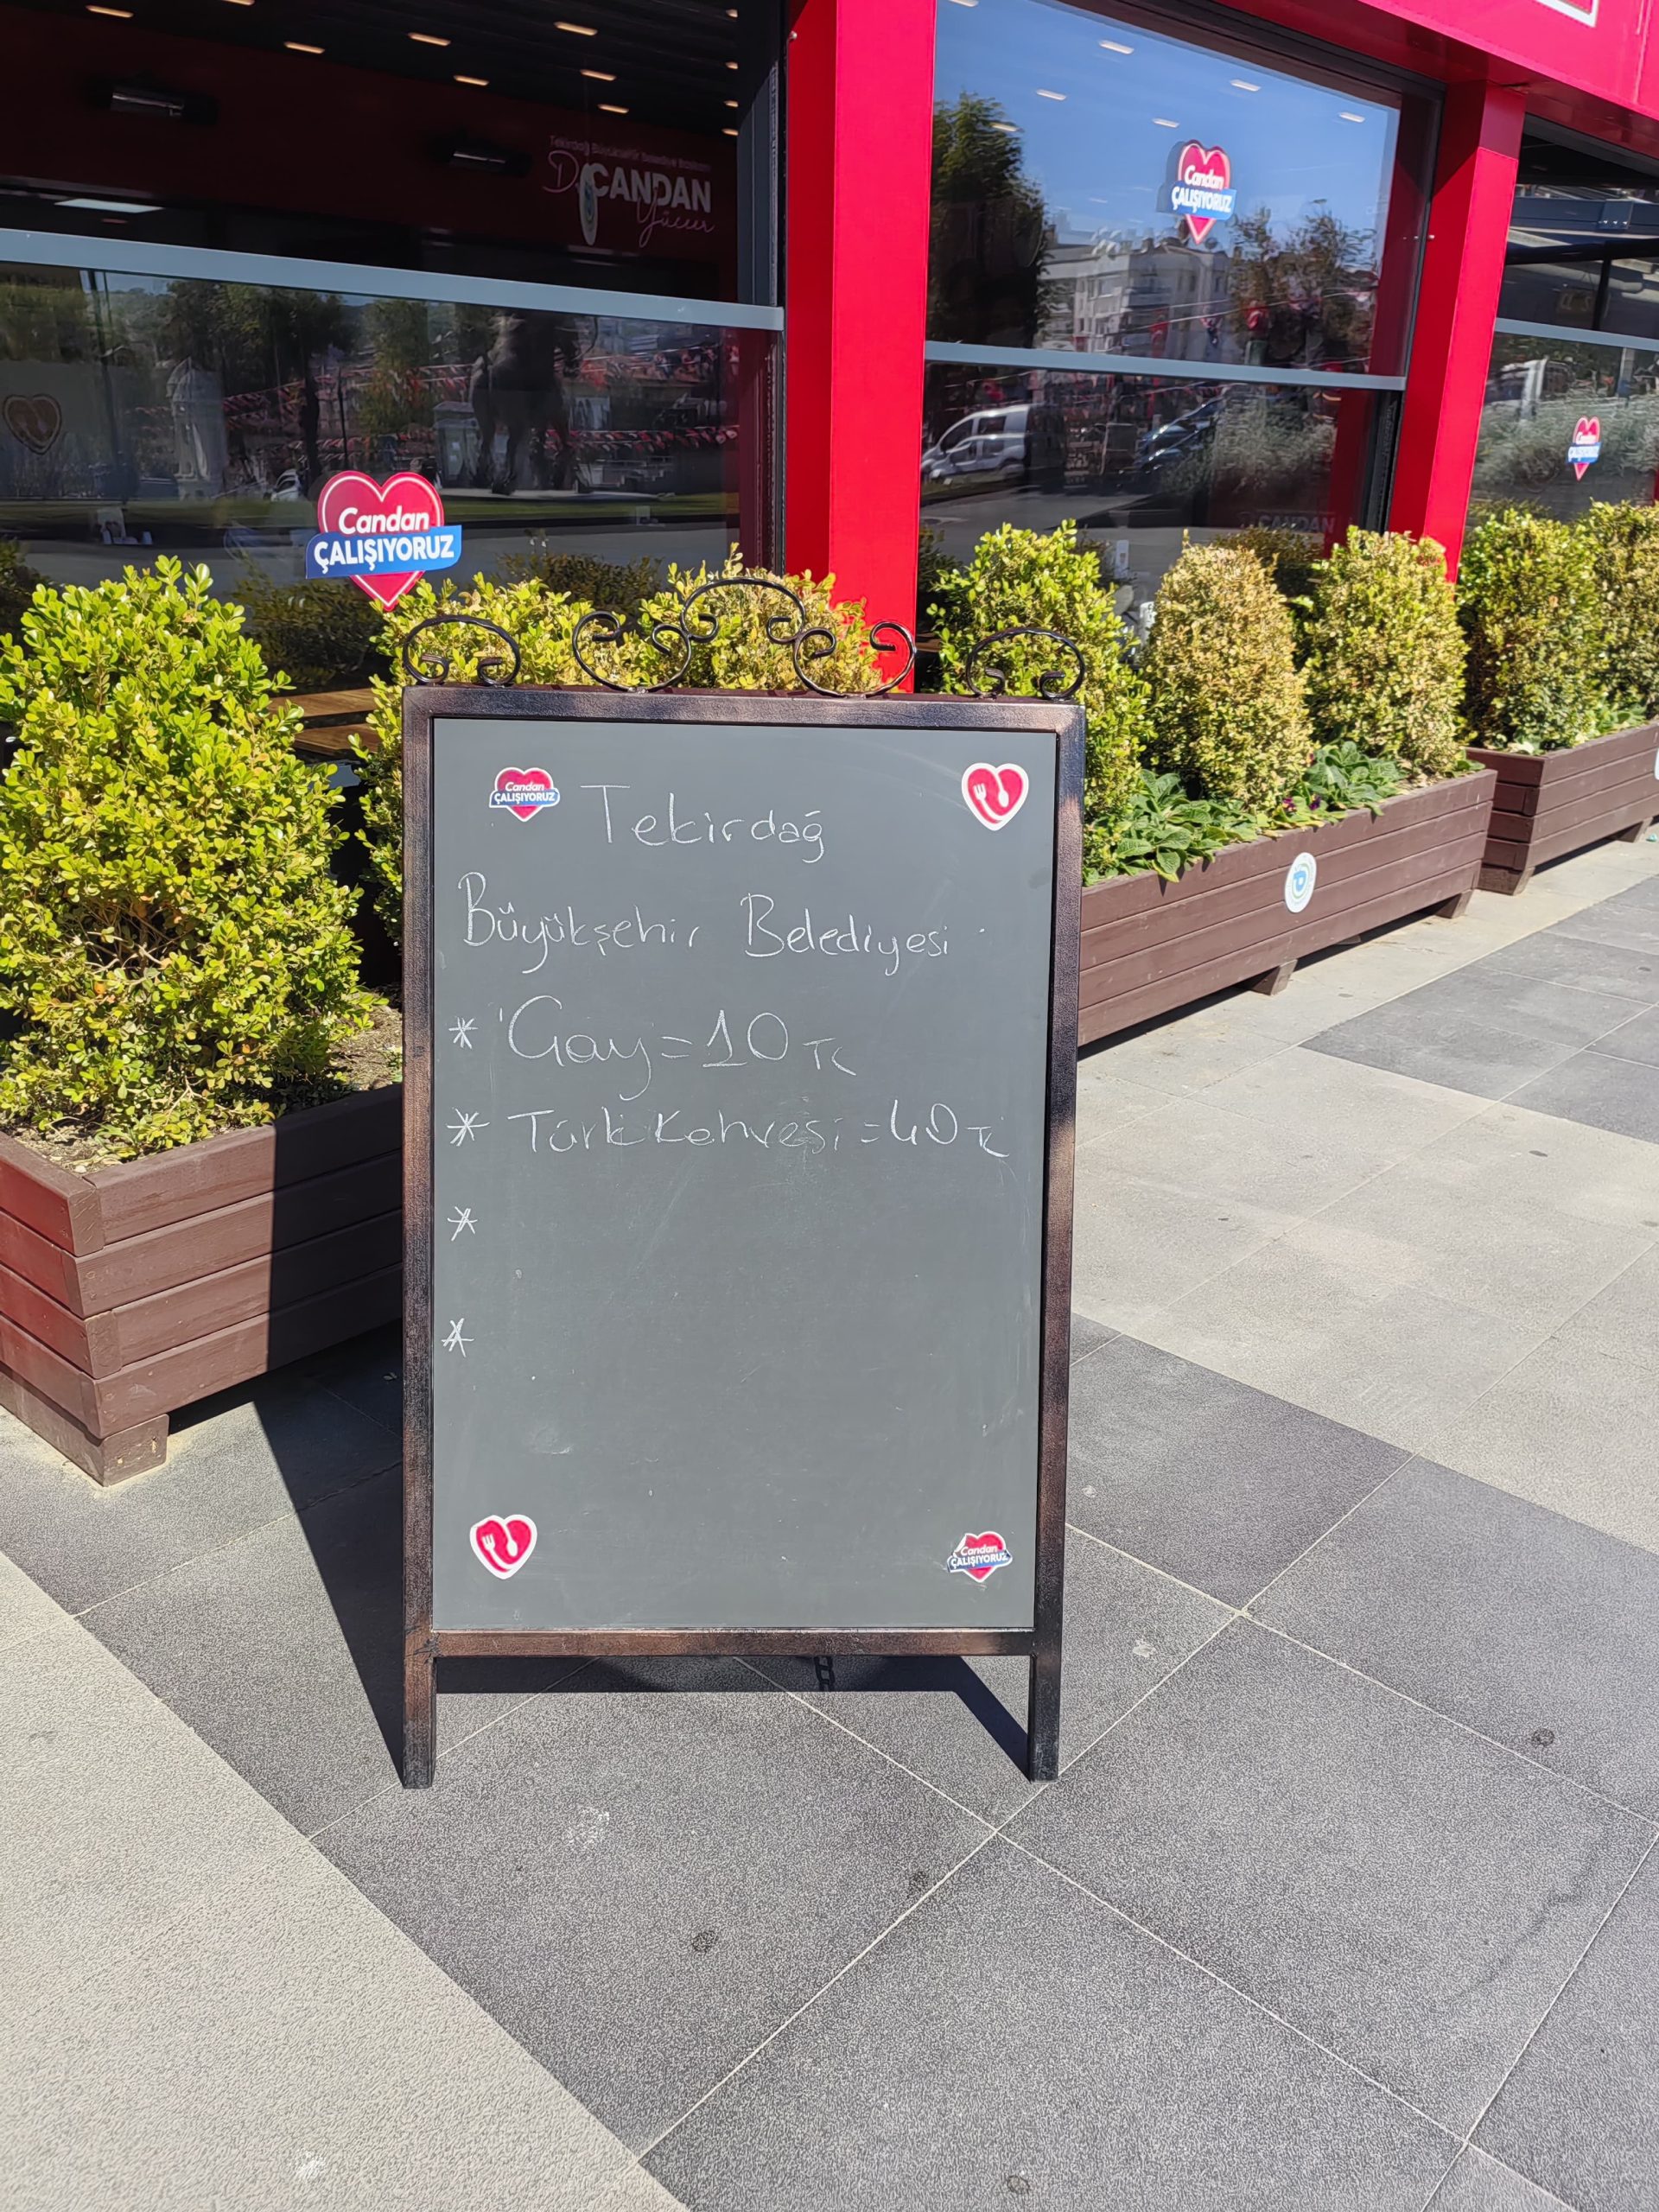 Tekirdağ Büyükşehir Belediye Başkanı
Dr. CANDAN
Yüceer
Candan
ÇALIŞIYORUZ
Candan
ÇALIŞIYORUZ
Candan
ÇALIŞIYORUZ
Candan
ÇALIŞIYORUZ
Tekirdağ
Büyükşehir Belediyesi
* Çay=10 TL
* Türk Kahvesi=40 TL
*
*
Candan
ÇALIŞIYORUZ